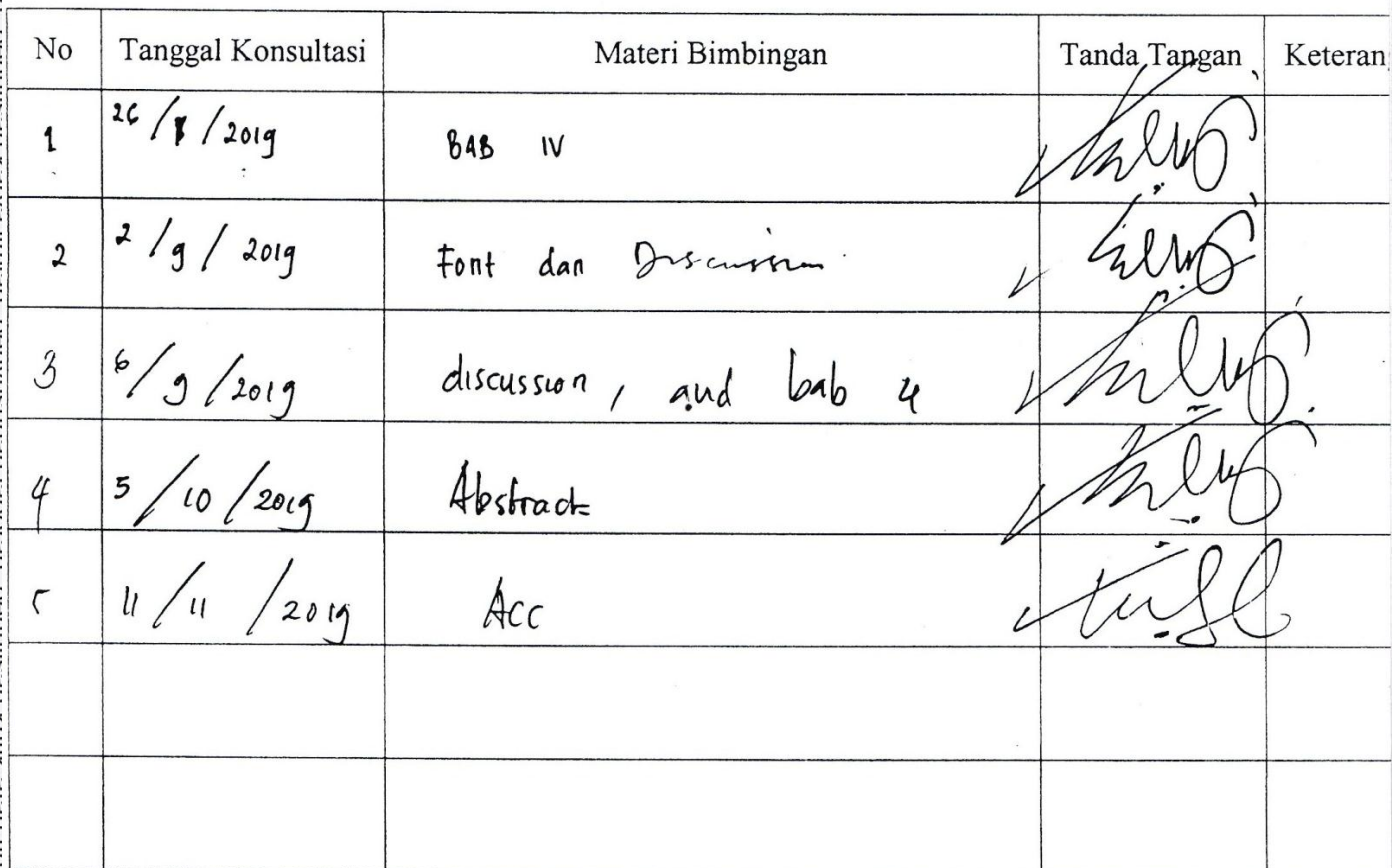 No Tanggal Konsultasi Materi Bimbingan Tanda Tangan Keteran
1 26 / / 2019 BAB IV
2 2 / 9 / 2019 Font dan Discussion
3 6 / 9 / 2019 discussion , and bab 4
4 5 / 10 / 2019 Abstract
5 11 / 11 / 2019 Acc